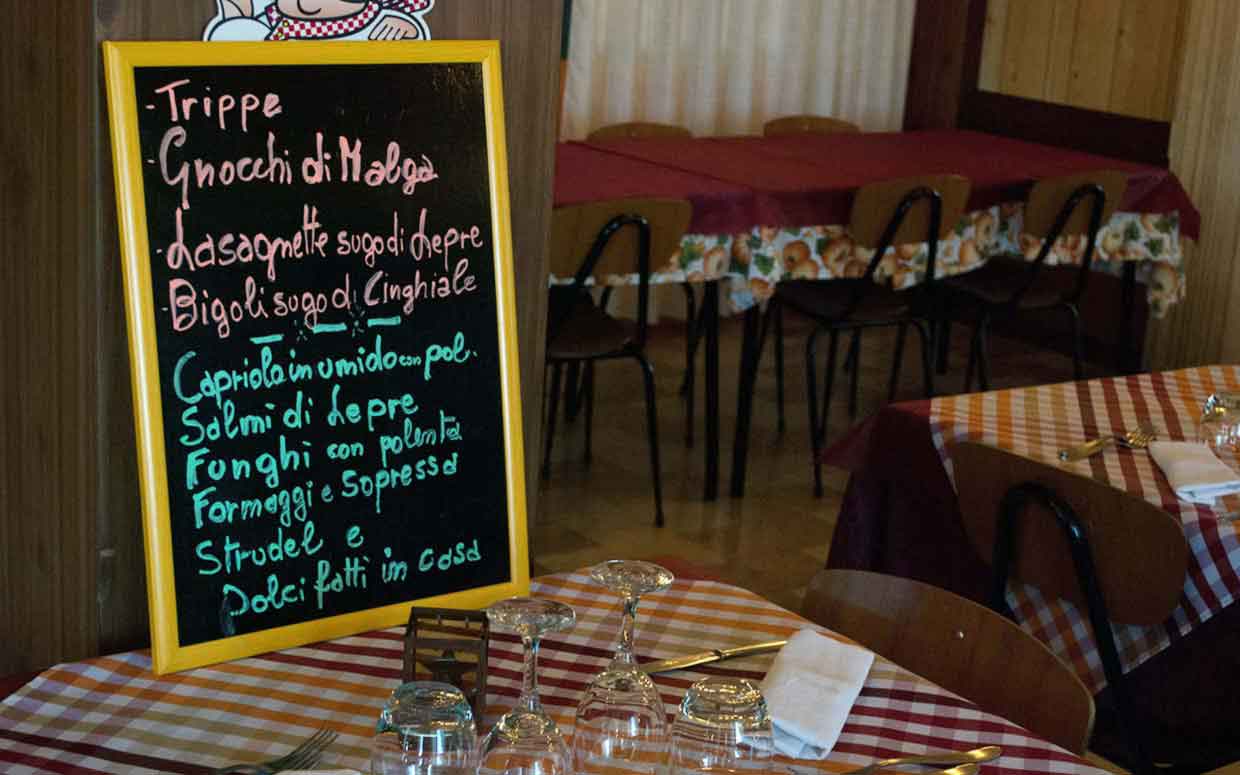 - Trippe
- Gnocchi di Malga
- Lasagnette sugo di Lepre
- Bigoli sugo di Cinghiale
Capriolo in umido con pol.
Salmi di Lepre
Funghi con polenta
Formaggi e Sopressa
Strudel e
Dolci fatti in casa